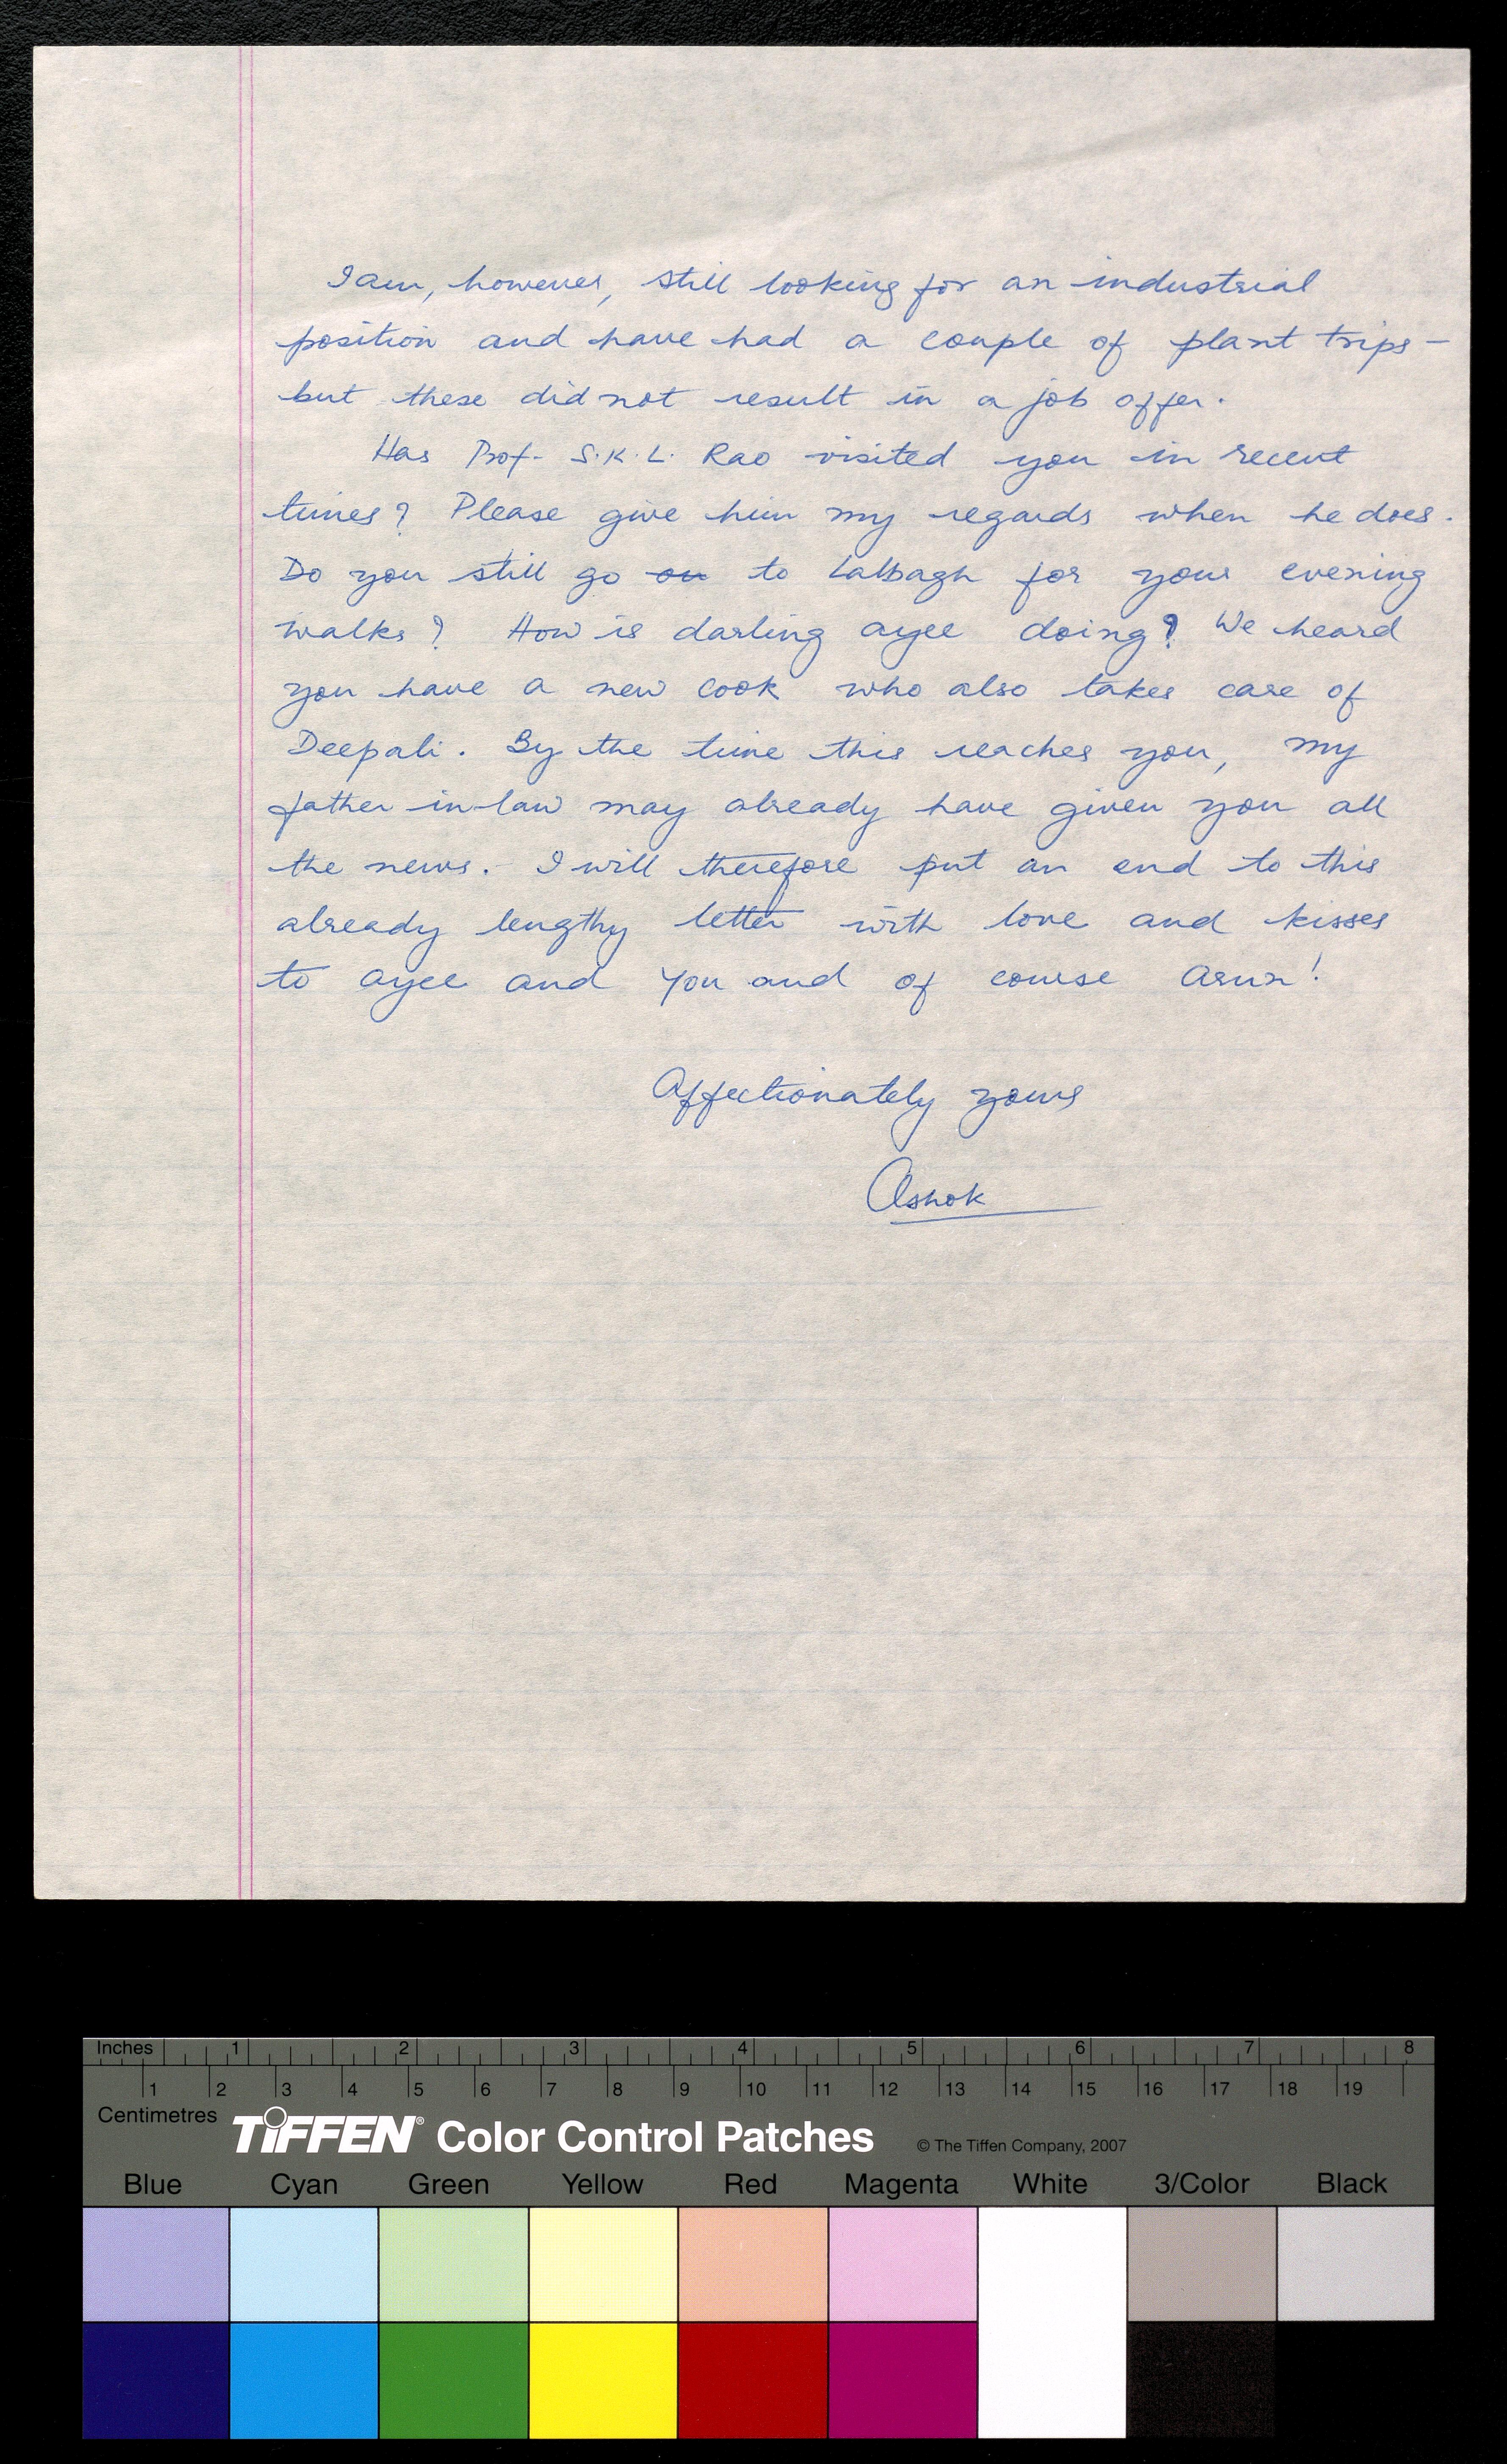 I am, however, still looking for an industrial
position and have had a couple of plant trips –
but these did not result in a job offer.
Has Prof. S.K.L. Rao visited you in recent
times? Please give him my regards when he does.
Do you still go on to Lalbagh for your evening
walks? How is darling ayee doing? We heard
you have a new cook who also takes care of
Deepali. By the time this reaches you, my
father-in-law may already have given you all
the news. I will therefore put an end to this
already lengthy letter with love and kisses
to ayee and you and of course Arun!
Affectionately yours
Ashok
Inches 1 2 3 4 5 6 7 8
1 2 3 4 5 6 7 8 9 10 11 12 13 14 15 16 17 18 19
Centimetres
TIFFEN® Color Control Patches © The Tiffen Company, 2007
Blue Cyan Green Yellow Red Magenta White 3/Color Black